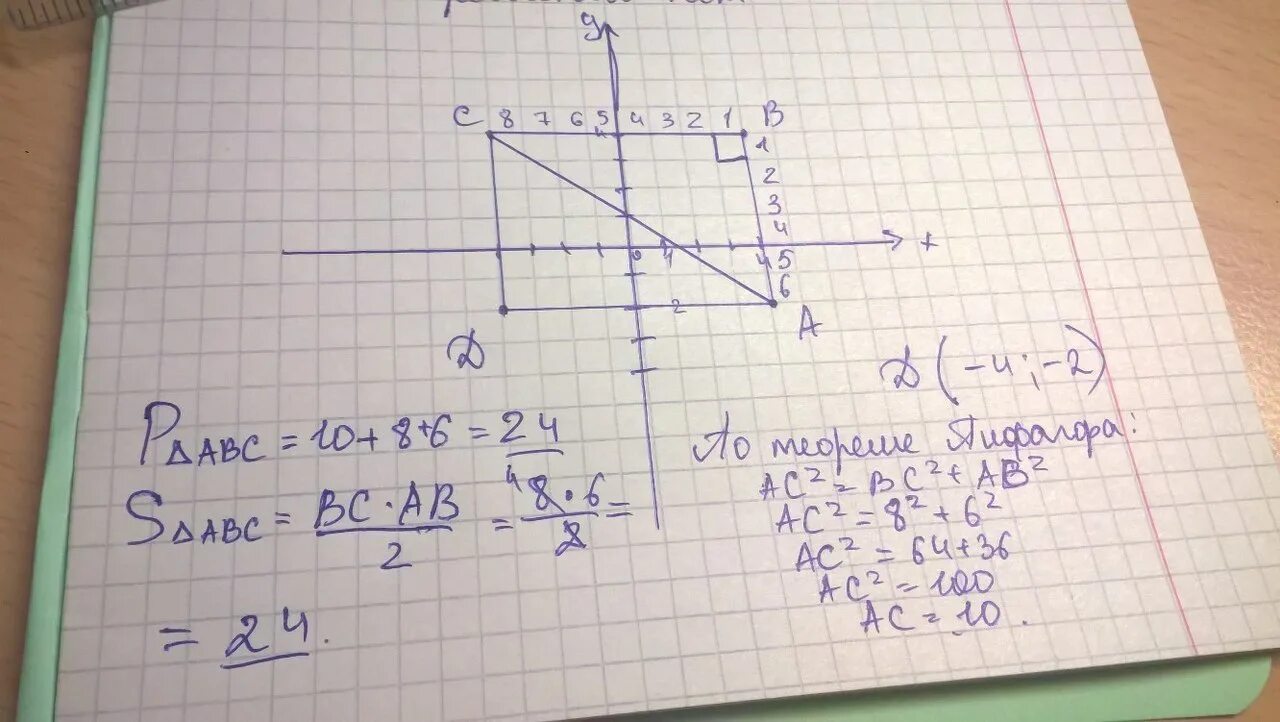 y
C 8 7 6 5 4 3 2 1 B
4
1
2
3
4
5
6
0 1 4 x
2
A
Д
Д(-4;-2)
P△ABC = 10 + 8 + 6 = 24
S△ABC = BC · AB / 2 = 8 · 6 / 2 =
4
= 24.
По теореме Пифагора:
AC² = BC² + AB²
AC² = 8² + 6²
AC² = 64 + 36
AC² = 100
AC = 10.